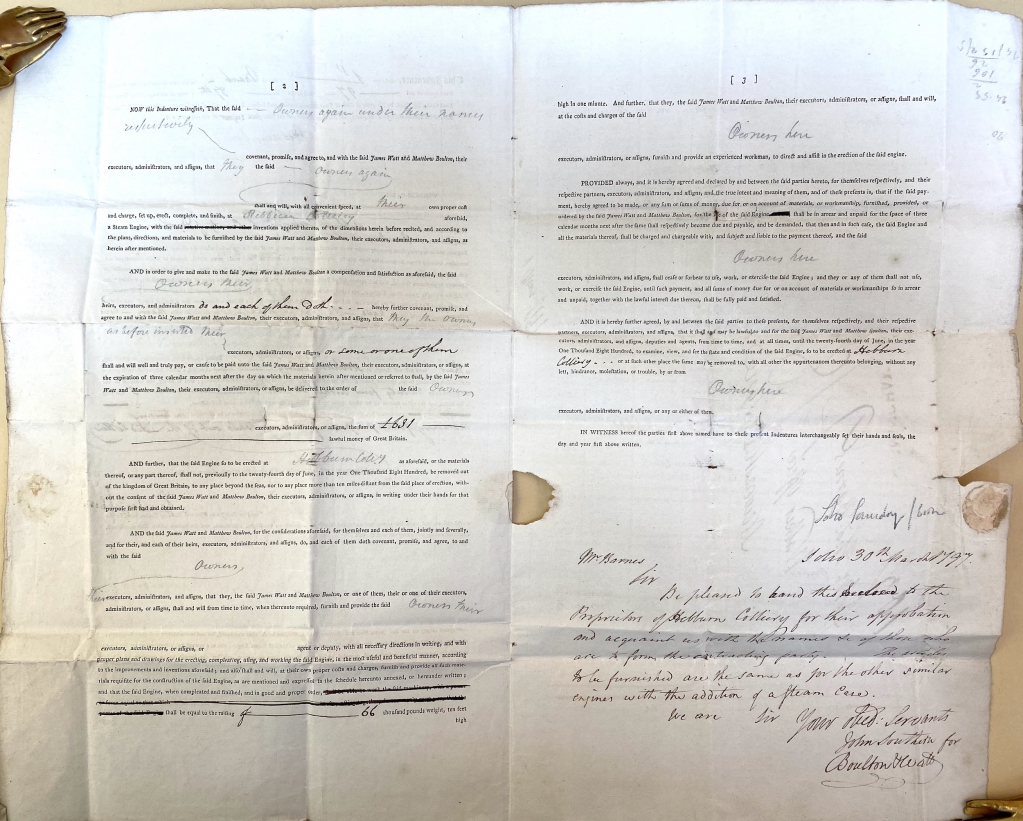 [ 2 ]
NOW this Indenture witnesseth, That the said — Owners again under their names
respectively
covenant, promise, and agree to, and with the said James Watt and Matthew Boulton, their
executors, administrators, and assigns, that they the said — owners again
shall and will, with all convenient speed, at their own proper cost
and charge, set up, erect, complete, and finish, at Hebburn Colliery aforesaid,
a Steam Engine, with the said inventions applied thereto, of the dimensions herein before recited, and according to
the plans, directions, and materials to be furnished by the said James Watt and Matthew Boulton, their executors, administrators, and assigns, as
herein after mentioned.
AND in order to give and make to the said James Watt and Matthew Boulton a compensation and satisfaction as aforesaid, the said
Owners their
heirs, executors, and administrators do and each of them doth - - - - hereby further covenant, promise, and
agree to and with the said James Watt and Matthew Boulton, their executors, administrators, and assigns, that they the owners
as before inserted their
executors, administrators, or assigns, or some or one of them
shall and will well and truly pay, or cause to be paid unto the said James Watt and Matthew Boulton, their executors, administrators, or assigns, at
the expiration of three calendar months next after the day on which the materials herein after mentioned or referred to shall, by the said James
Watt and Matthew Boulton, their executors, administrators, or assigns, be delivered to the order of the said Owners
executors, administrators, or assigns, the sum of £631
lawful money of Great Britain.
AND further, that the said Engine so to be erected at Hebburn Coll'y as aforesaid, or the materials
thereof, or any part thereof, shall not, previously to the twenty-fourth day of June, in the year One Thousand Eight Hundred, be removed out
of the kingdom of Great Britain, to any place beyond the seas, nor to any place more than ten miles distant from the said place of erection, with-
out the consent of the said James Watt and Matthew Boulton, their executors, administrators, or assigns, in writing under their hands for that
purpose first had and obtained.
AND the said James Watt and Matthew Boulton, for the considerations aforesaid, for themselves and each of them, jointly and severally,
and for their, and each of their heirs, executors, administrators, and assigns, do, and each of them doth covenant, promise, and agree, to and
with the said
Owners
their executors, administrators, and assigns, that they, the said James Watt and Matthew Boulton, or one of them, their or one of their executors,
administrators, or assigns, shall and will from time to time, when thereunto required, furnish and provide the said Owners their
executors, administrators, or assigns, or agent or deputy, with all necessary directions in writing, and with
proper plans and drawings for the erecting, compleating, using, and working the said Engine, in the most useful and beneficial manner, according
to the improvements and inventions aforesaid; and also shall and will, at their own proper costs and charges, furnish and provide all such mate-
rials requisite for the construction of the said Engine, as are mentioned and expressed in the schedule hereunto annexed, or hereunder written;
and that the said Engine, when compleated and finished, and in good and proper order,
shall be equal to the raising of 66 thousand pounds weight, ten feet
high
[ 3 ]
high in one minute. And further, that they, the said James Watt and Matthew Boulton, their executors, administrators, or assigns, shall and will,
at the costs and charges of the said
Owners here
executors, administrators, or assigns, furnish and provide an experienced workman, to direct and assist in the erection of the said engine.
PROVIDED always, and it is hereby agreed and declared by and between the said parties hereto, for themselves respectively, and their
respective partners, executors, administrators, and assigns, and the true intent and meaning of them, and of these presents is, that if the said pay-
ment, hereby agreed to be made, or any sum or sums of money, due for or on account of materials, or workmanship, furnished, provided, or
ordered by the said James Watt and Matthew Boulton, for the use of the said Engine shall be in arrear and unpaid for the space of three
calendar months next after the same shall respectively become due and payable, and be demanded, that then and in such case, the said Engine and
all the materials thereof, shall be charged and chargeable with, and subject and liable to the payment thereof, and the said
Owners here
executors, administrators, and assigns, shall cease or forbear to use, work, or exercise the said Engine; and they or any of them shall not use,
work, or exercise the said Engine, until such payment, and all sums of money due for or on account of materials or workmanship so in arrear
and unpaid, together with the lawful interest due thereon, shall be fully paid and satisfied.
AND it is hereby further agreed, by and between the said parties to these presents, for themselves respectively, and their respective
partners, executors, administrators, and assigns, that it shall and may be lawful to and for the said James Watt and Matthew Boulton, their exe-
cutors, administrators, and assigns, deputies and agents, from time to time, and at all times, until the twenty-fourth day of June, in the year
One Thousand Eight Hundred, to examine, view, and see the state and condition of the said Engine, so to be erected at Hebburn
Colliery - - or at such other place the same may be removed to, with all other the appurtenances thereunto belonging, without any
lett, hindrance, molestation, or trouble, by or from
Owners here
executors, administrators, and assigns, or any or either of them.
IN WITNESS hereof the parties first above named have to these present Indentures interchangeably set their hands and seals, the
day and year first above written.
Soho 30th March 1797.
Mr Barnes
Sir
Be pleased to hand this enclosed to the
Proprietors of Hebburn Colliery for their approbation
and acquaint us with the names &c of those who
are to form the contracting party. The articles
to be furnished are the same as for the other similar
engines with the addition of a steam Case.
We are Sir Your Obed: Servants
John Southern for
Boulton & Watt